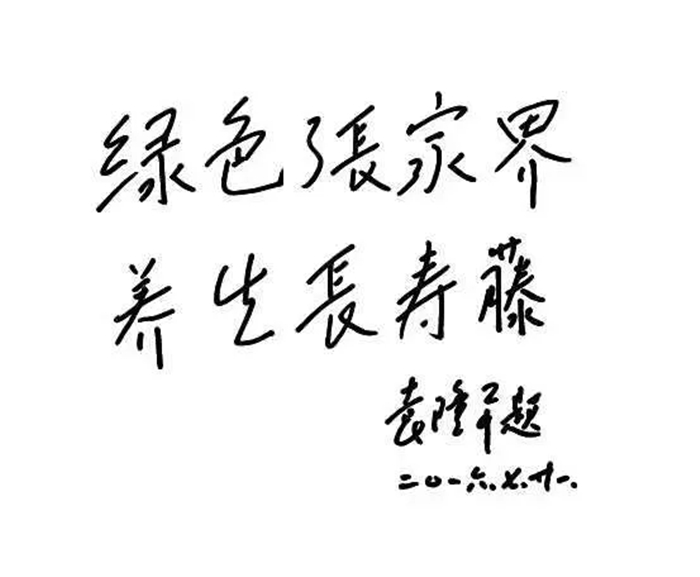 绿色張家界
养生長寿藤
袁隆平题
二〇一六.七.廿一.